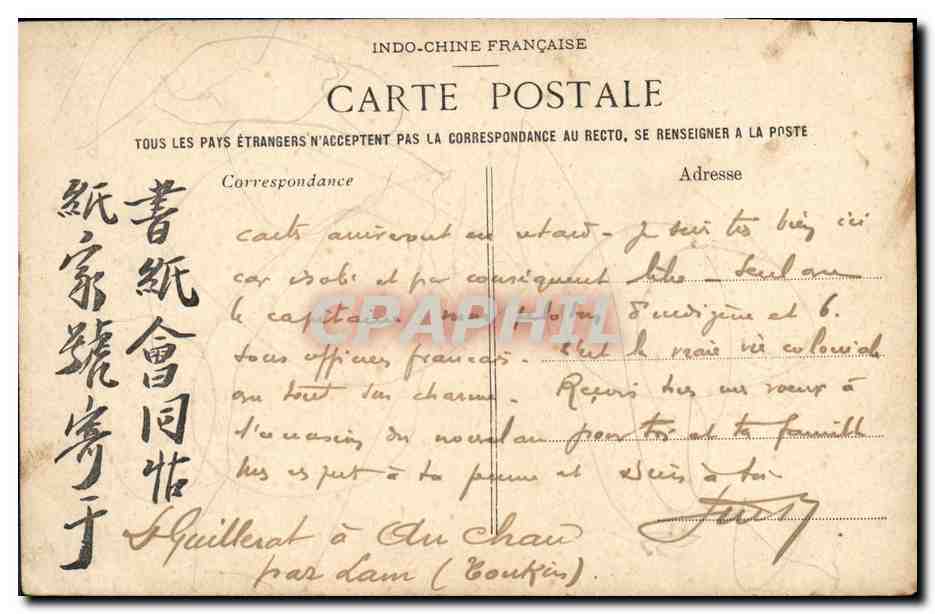 INDO-CHINE FRANÇAISE
CARTE POSTALE
TOUS LES PAYS ÉTRANGERS N'ACCEPTENT PAS LA CORRESPONDANCE AU RECTO, SE RENSEIGNER A LA POSTE
Correspondance
Adresse
書紙會同
紙家號寄于
carts arriveront en retard - Je suis très bien ici
car isolé et par conséquent libre - Seul avec
le capitaine nous d'indigène et 6
sous officiers francais. C'est la vraie vie coloniale
en tout son charme. Reçois tous mes voeux à
l'occasion du nouvel an pour toi et ta famille
à ta femme et Suis à toi
Lt Guillerat à An Chau
par Lam (Tonkin).
CPRAPHIL